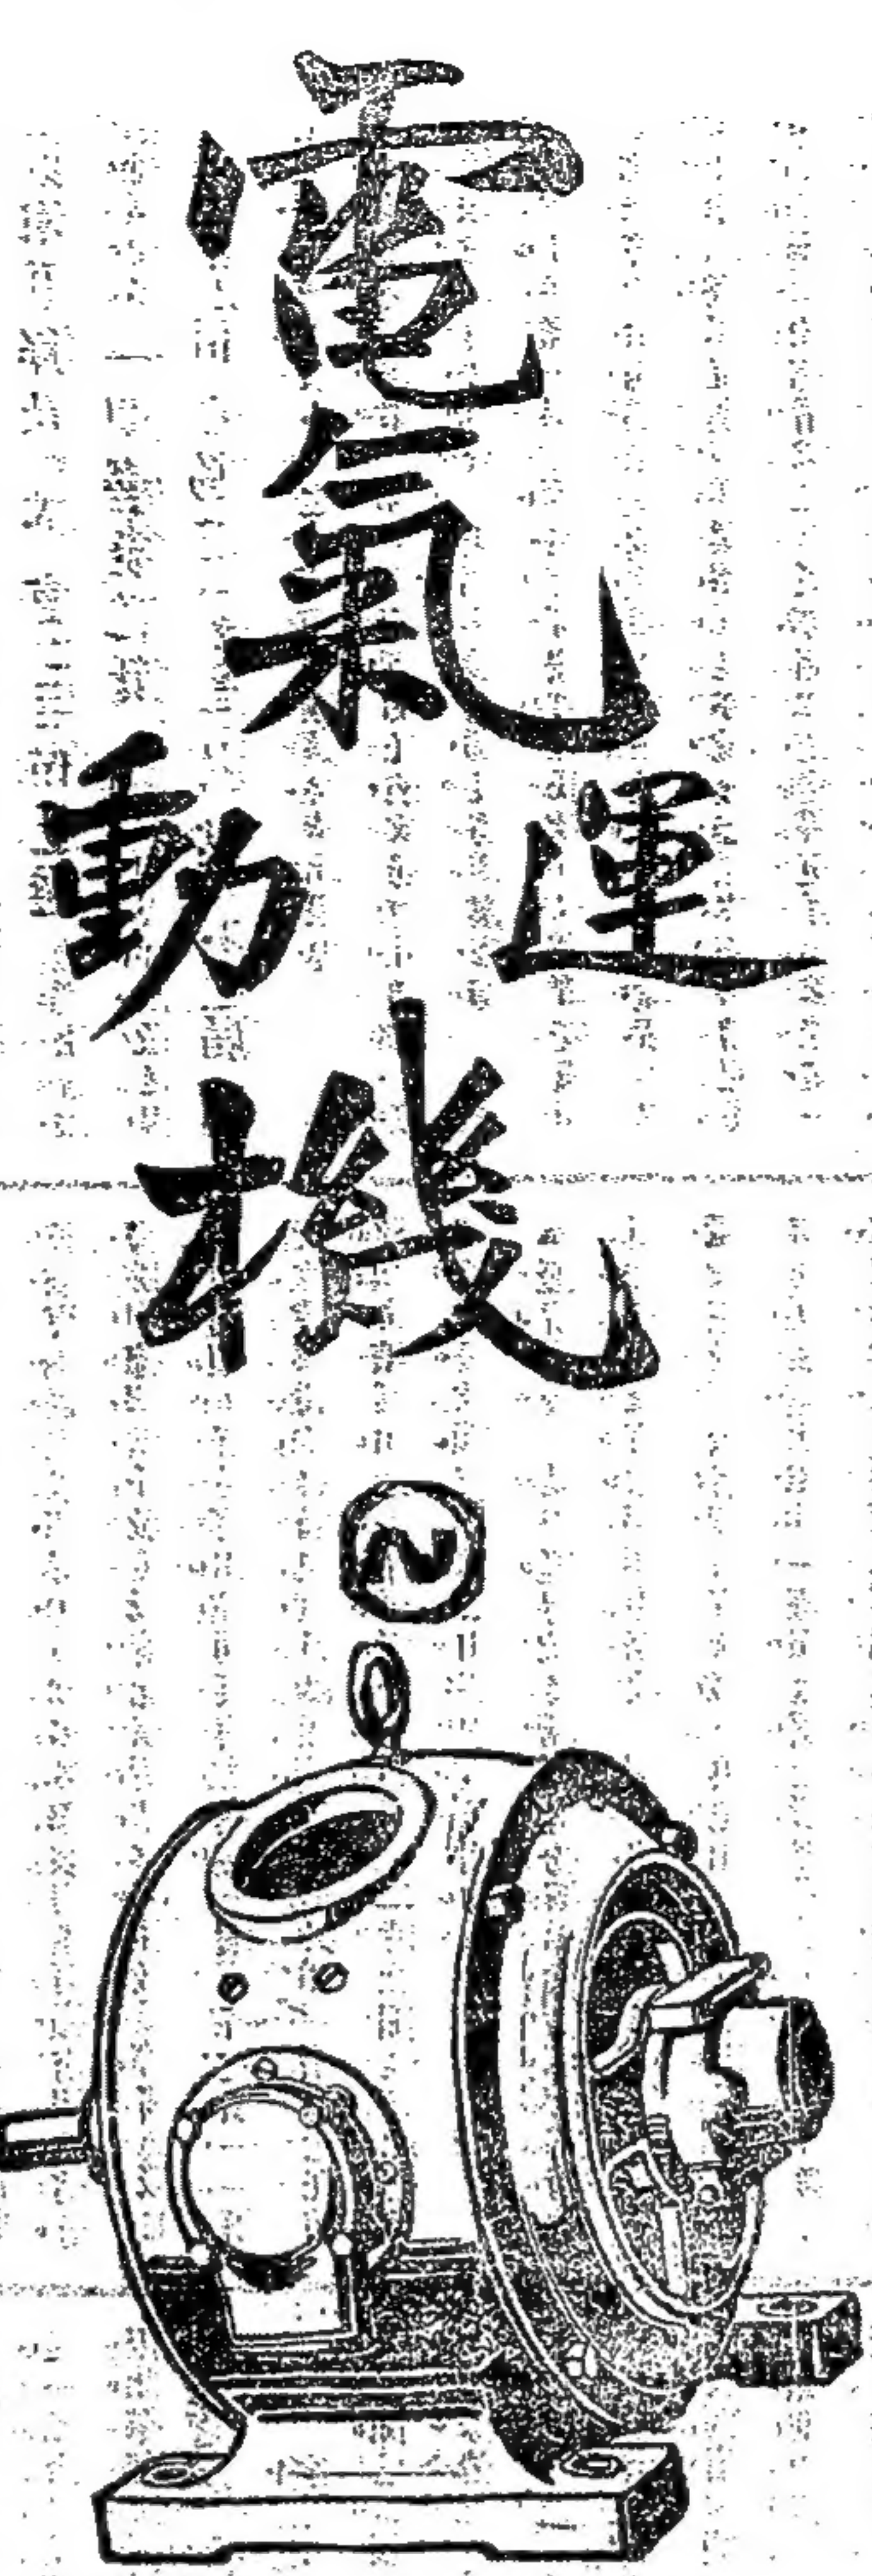 電氣
運動
機
N